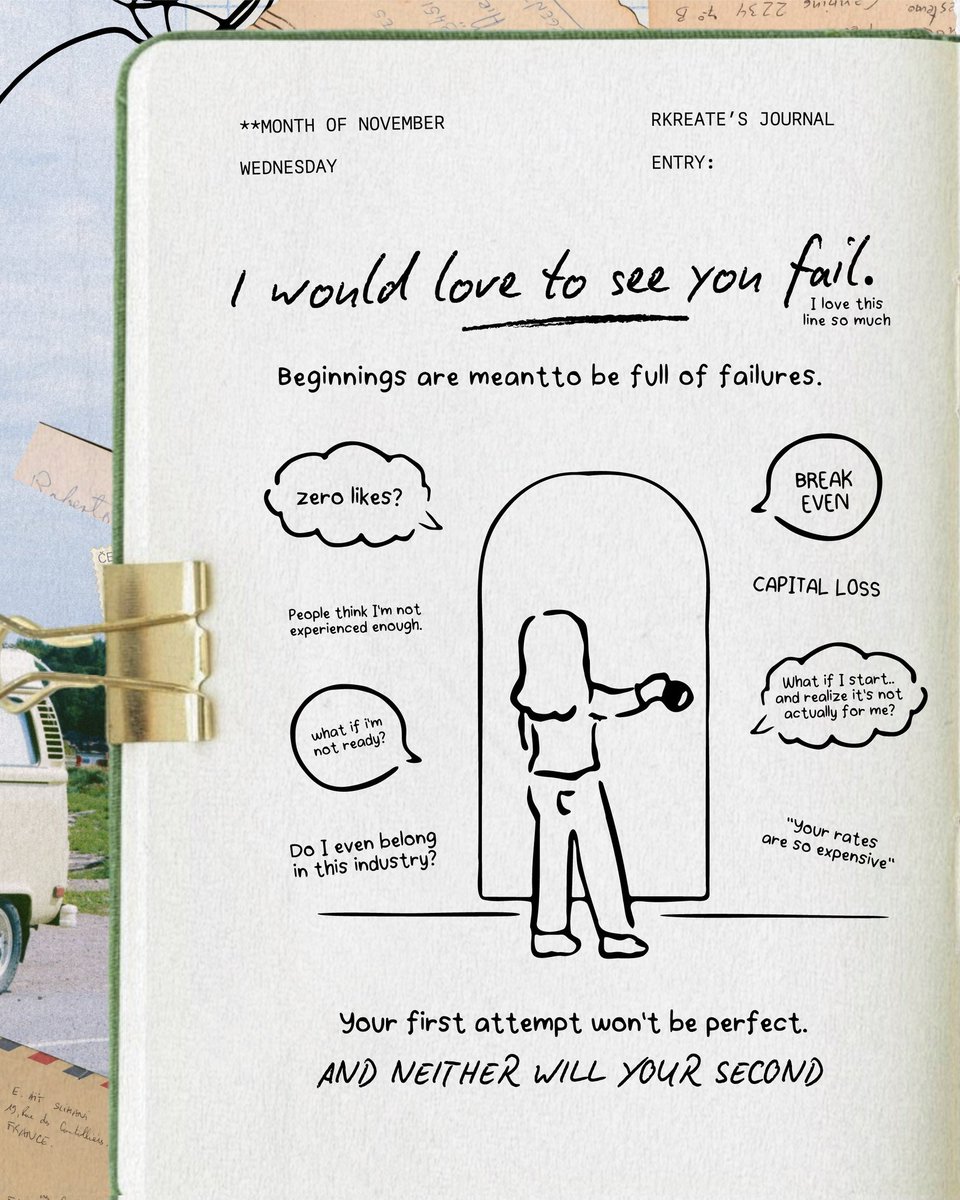 **MONTH OF NOVEMBER
WEDNESDAY
RKREATE'S JOURNAL
ENTRY:
I would love to see you fail.
I love this
line so much
Beginnings are meantto be full of failures.
zero likes?
BREAK
EVEN
People think I'm not
experienced enough.
CAPITAL LOSS
what if i'm
not ready?
What if I start..
and realize it's not
actually for me?
Do I even belong
in this industry?
"Your rates
are so expensive"
Your first attempt won't be perfect.
AND NEITHER WILL YOUR SECOND
2234 7º B
FRANCE.